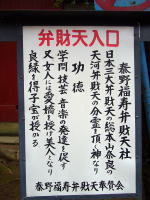 弁財天入口
秦野福寿弁財天社
日本三大弁財天の総本山奈良の
天河弁財天の分霊を頂く神なり
功徳
学問 技芸 音楽の発達を促す
又女人には愛嬌を授け美人なり
良縁を得子宝が授かる
秦野福寿弁財天奉賛会